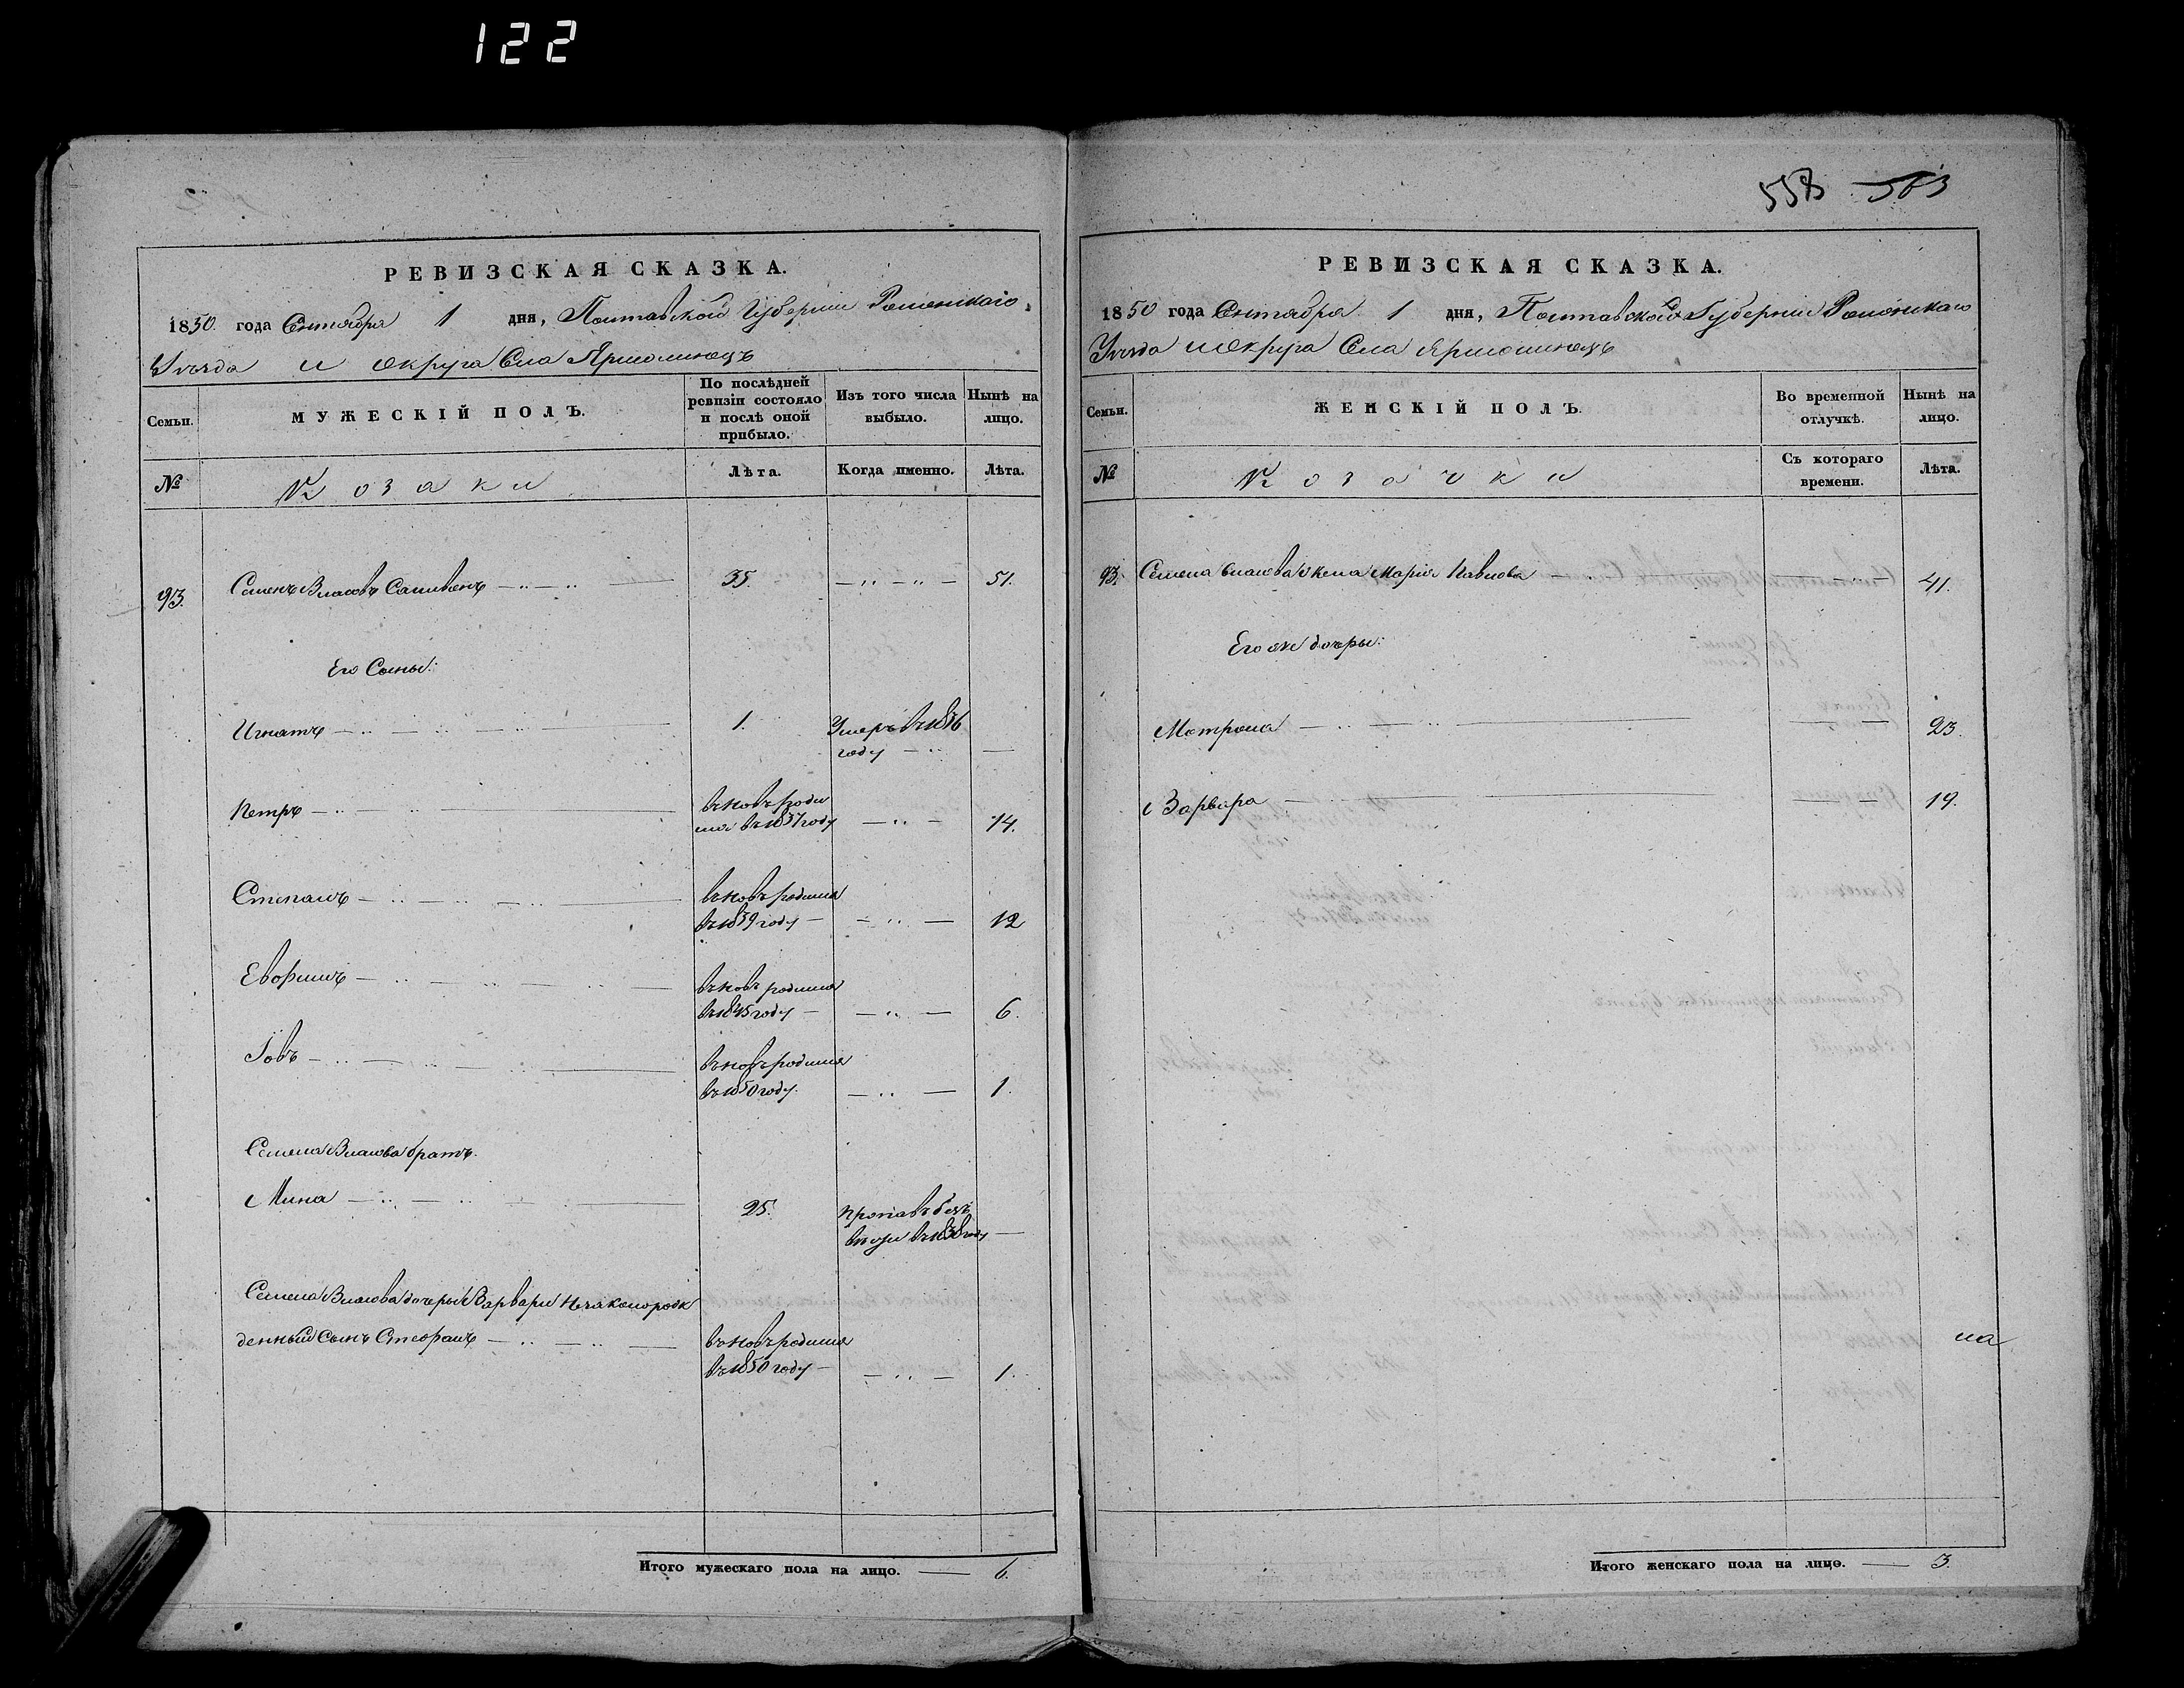 122
558 563
РЕВИЗСКАЯ СКАЗКА.
1850. года Сентября 1 дня, Полтавской Губернии Роменскаго
Уѣзда и округа Села Ярмолинецъ
Семьи.
МУЖЕСКІЙ ПОЛЪ.
По послѣдней ревизіи состояло и послѣ оной прибыло.
Изъ того числа выбыло.
Нынѣ на лицо.
№
Козаки
Лѣта.
Когда именно.
Лѣта.
93. Семенъ Власовъ 35. 51.
Его Сыны:
Игнатъ 1. Умеръ въ 1836
году
Петръ въновь роди
лся въ 1837 году 14.
Степанъ въновь родился
въ 1839 году 12
Евфимъ въновь родился
въ 1845 году 6.
Іовъ въновь родился
въ 1850 году. 1.
Семена Власова братъ.
Мина 25. пропавъ безъ
въ 1838 году
Семена Власова дочеры Варвары Незаконорож
денный сынъ Стефанъ въновь родился
въ 1850 году 1.
Итого мужескаго пола на лицо. 6.
РЕВИЗСКАЯ СКАЗКА.
1850 года Сентября 1 дня, Полтавской Губерніи Роменскаго
Уѣзда и Округа Села Ярмолинецъ
Семьи.
ЖЕНСКІЙ ПОЛЪ.
Во временной отлучкѣ.
Нынѣ на лицо.
№
Козачки
Съ котораго времени.
Лѣта.
93. Семена Власова жена Марія Павлова 41.
Его же дочеры:
Мотрона 23.
Варвара 19.
на
Итого женскаго пола на лицо. 3.